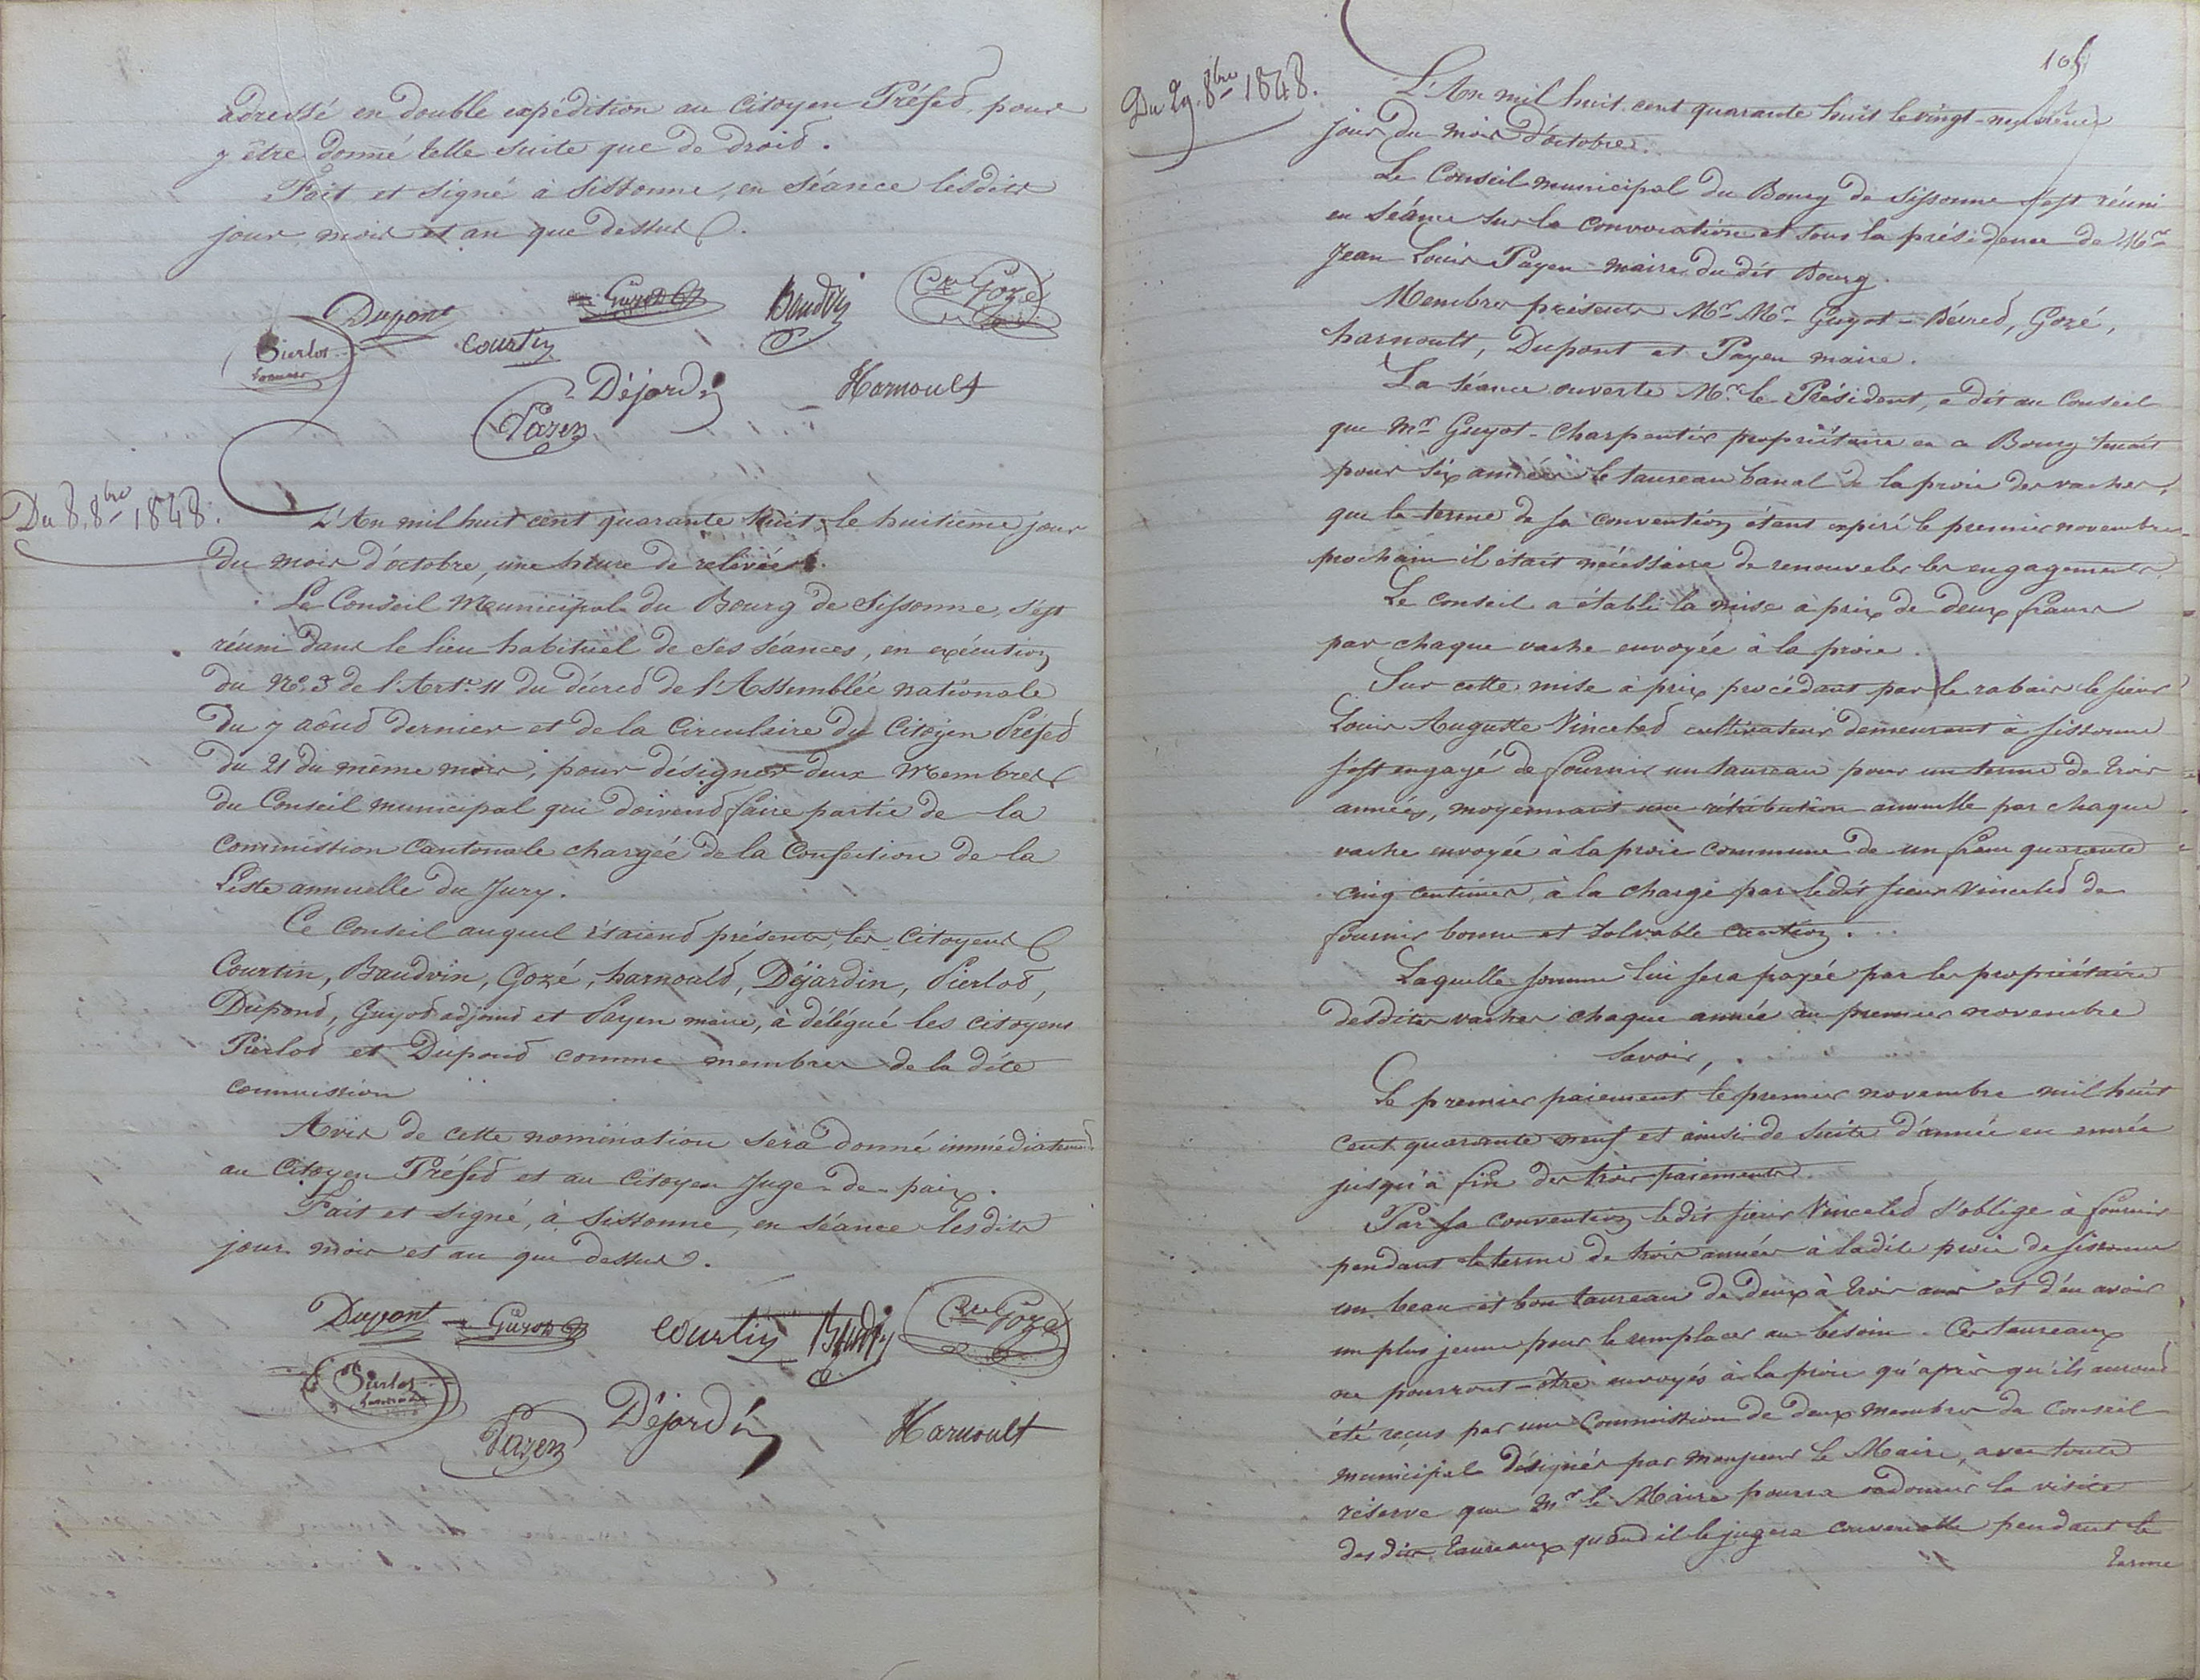 adressé en double expédition au Citoyen Préfet, pour
y être donné telle suite que de droit.
Fait et signé à Sissonne, en séance lesdits
jour, mois et an que dessus.
Dupont Guyot Baudoin Cte Gozé
Pierlot Courtin
Déjardin Harnoult
Payen
Du 8. 8bre 1848.
L'An mil huit cent quarante huit, le huitième jour
du mois d'octobre, une heure de relevée.
Le Conseil Municipal du Bourg de Sissonne, s'est
réuni dans le lieu habituel de ses séances, en exécution
du No. 3 de l'Art. 11 du décret de l'Assemblée nationale
du 7 août dernier et de la Circulaire du Citoyen Préfet
du 21 du même mois, pour désigner deux Membres
du Conseil municipal qui doivent faire partie de la
Commission Cantonale chargée de la Confection de la
Liste annuelle du Jury.
Ce Conseil auquel étaient présents, les Citoyens
Courtin, Baudvin, Gozé, harnould, Déjardin, Pierlot,
Dupont, Guyot adjoint et Payen maire, à délégué les citoyens
Pierlot et Dupont comme membres de la dite
commission
Avis de cette nomination sera donné immédiatement
au Citoyen Préfet et au Citoyen Juge-de-paix.
Fait et signé, à Sissonne, en séance lesdits
jour mois et an que dessus.
Dupont Guyot Courtin Baudoin Cte Gozé
Pierlot
Payen Déjardin Harnoult
105
Du 29. 8bre 1848.
L'An mil huit cent quarante huit le vingt-neuvième
jour du mois d'octobre.
Le Conseil municipal du Bourg de Sissonne s'est réuni
en séance sur la convocation et sous la présidence de Mr
Jean Louis Payen maire du dit Bourg.
Membres présents Mr. Mr. Guyot-Béured, Gozé,
harnoult, Dupont et Payen maire.
La séance ouverte Mr. le Président, a dit au Conseil
que Mr Guyot-Charpentier propriétaire en ce Bourg tenait
pour six années le taureau banal de la proie des vaches,
que le terme de sa convention étant expiré le premier novembre
prochain il était nécessaire de renouveler les engagements.
Le conseil a établi la mise à prix de deux francs
par chaque vache envoyée à la proie.
Sur cette mise à prix procédant par le rabais le sieur
Louis Auguste Vincelet cultivateur demeurant à Sissonne
s'est engagé de fournir un taureau pour un terme de trois
années, moyennant une rétribution annuelle par chaque
vache envoyée à la proie commune de un franc quarante
cinq centimes, à la charge par ledit sieur Vincelet de
fournir bonne et solvable caution.
Laquelle somme lui sera payée par les propriétaire
desdites vaches chaque année au premier novembre
savoir,
Le premier paiement le premier novembre mil huit
cent quarante neuf et ainsi de suite d'année en année
jusqu'à fin des trois paiements.
Par sa convention ledit sieur Vincelet s'oblige à fournir
pendant le terme de trois années à ladite proie de Sissonne
un beau et bon taureau de deux à trois ans et d'en avoir
un plus jeune pour le remplacer au besoin. Ces taureaux
ne pourront-être envoyés à la proie qu'après qu'ils auront
été reçus par une Commission de deux membres du Conseil
municipal désignés par Monsieur le Maire, avec toute
réserve que Mr le Maire pourra ordonner la visite
des dits taureaux quand il le jugera convenable pendant le
terme